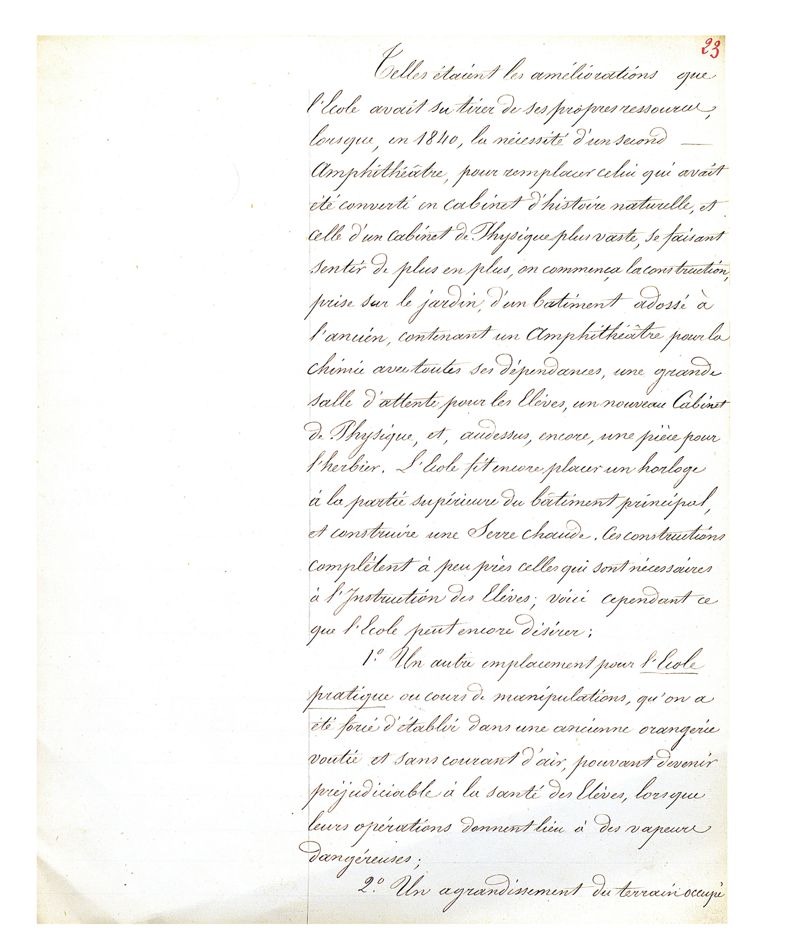 23
Telles étaient les améliorations que
l'Ecole avait su tirer de ses propres ressources,
lorsque, en 1840, la nécessité d'un second —
Amphithéâtre, pour remplacer celui qui avait
été converti en cabinet d'histoire naturelle, et
celle d'un cabinet de Physique plus vaste, se faisant
sentir de plus en plus, on commença la construction,
prise sur le jardin, d'un batiment adossé à
l'ancien, contenant un Amphithéâtre pour la
chimie avec toutes ses dépendances, une grande
salle d'attente pour les Elèves, un nouveau Cabinet
de Physique, et, audessus, encore, une pièce pour
l'herbier. L'Ecole fit encore placer un horloge
à la partie supérieure du bâtiment principal,
et construire une Serre chaude. Ces constructions
complètent à peu près celles qui sont nécessaires
à l'Instruction des Elèves; voici cependant ce
que l'Ecole peut encore désirer:
1.° Un autre emplacement pour l'Ecole
pratique ou cours de manipulations, qu'on a
été forcé d'établir dans une ancienne orangerie
voutée et sans courant d'air, pouvant devenir
préjudiciable à la santé des Elèves, lorsque
leurs opérations donnent lieu à des vapeurs
dangéreuses;
2.° Un agrandissement du terrain occupé